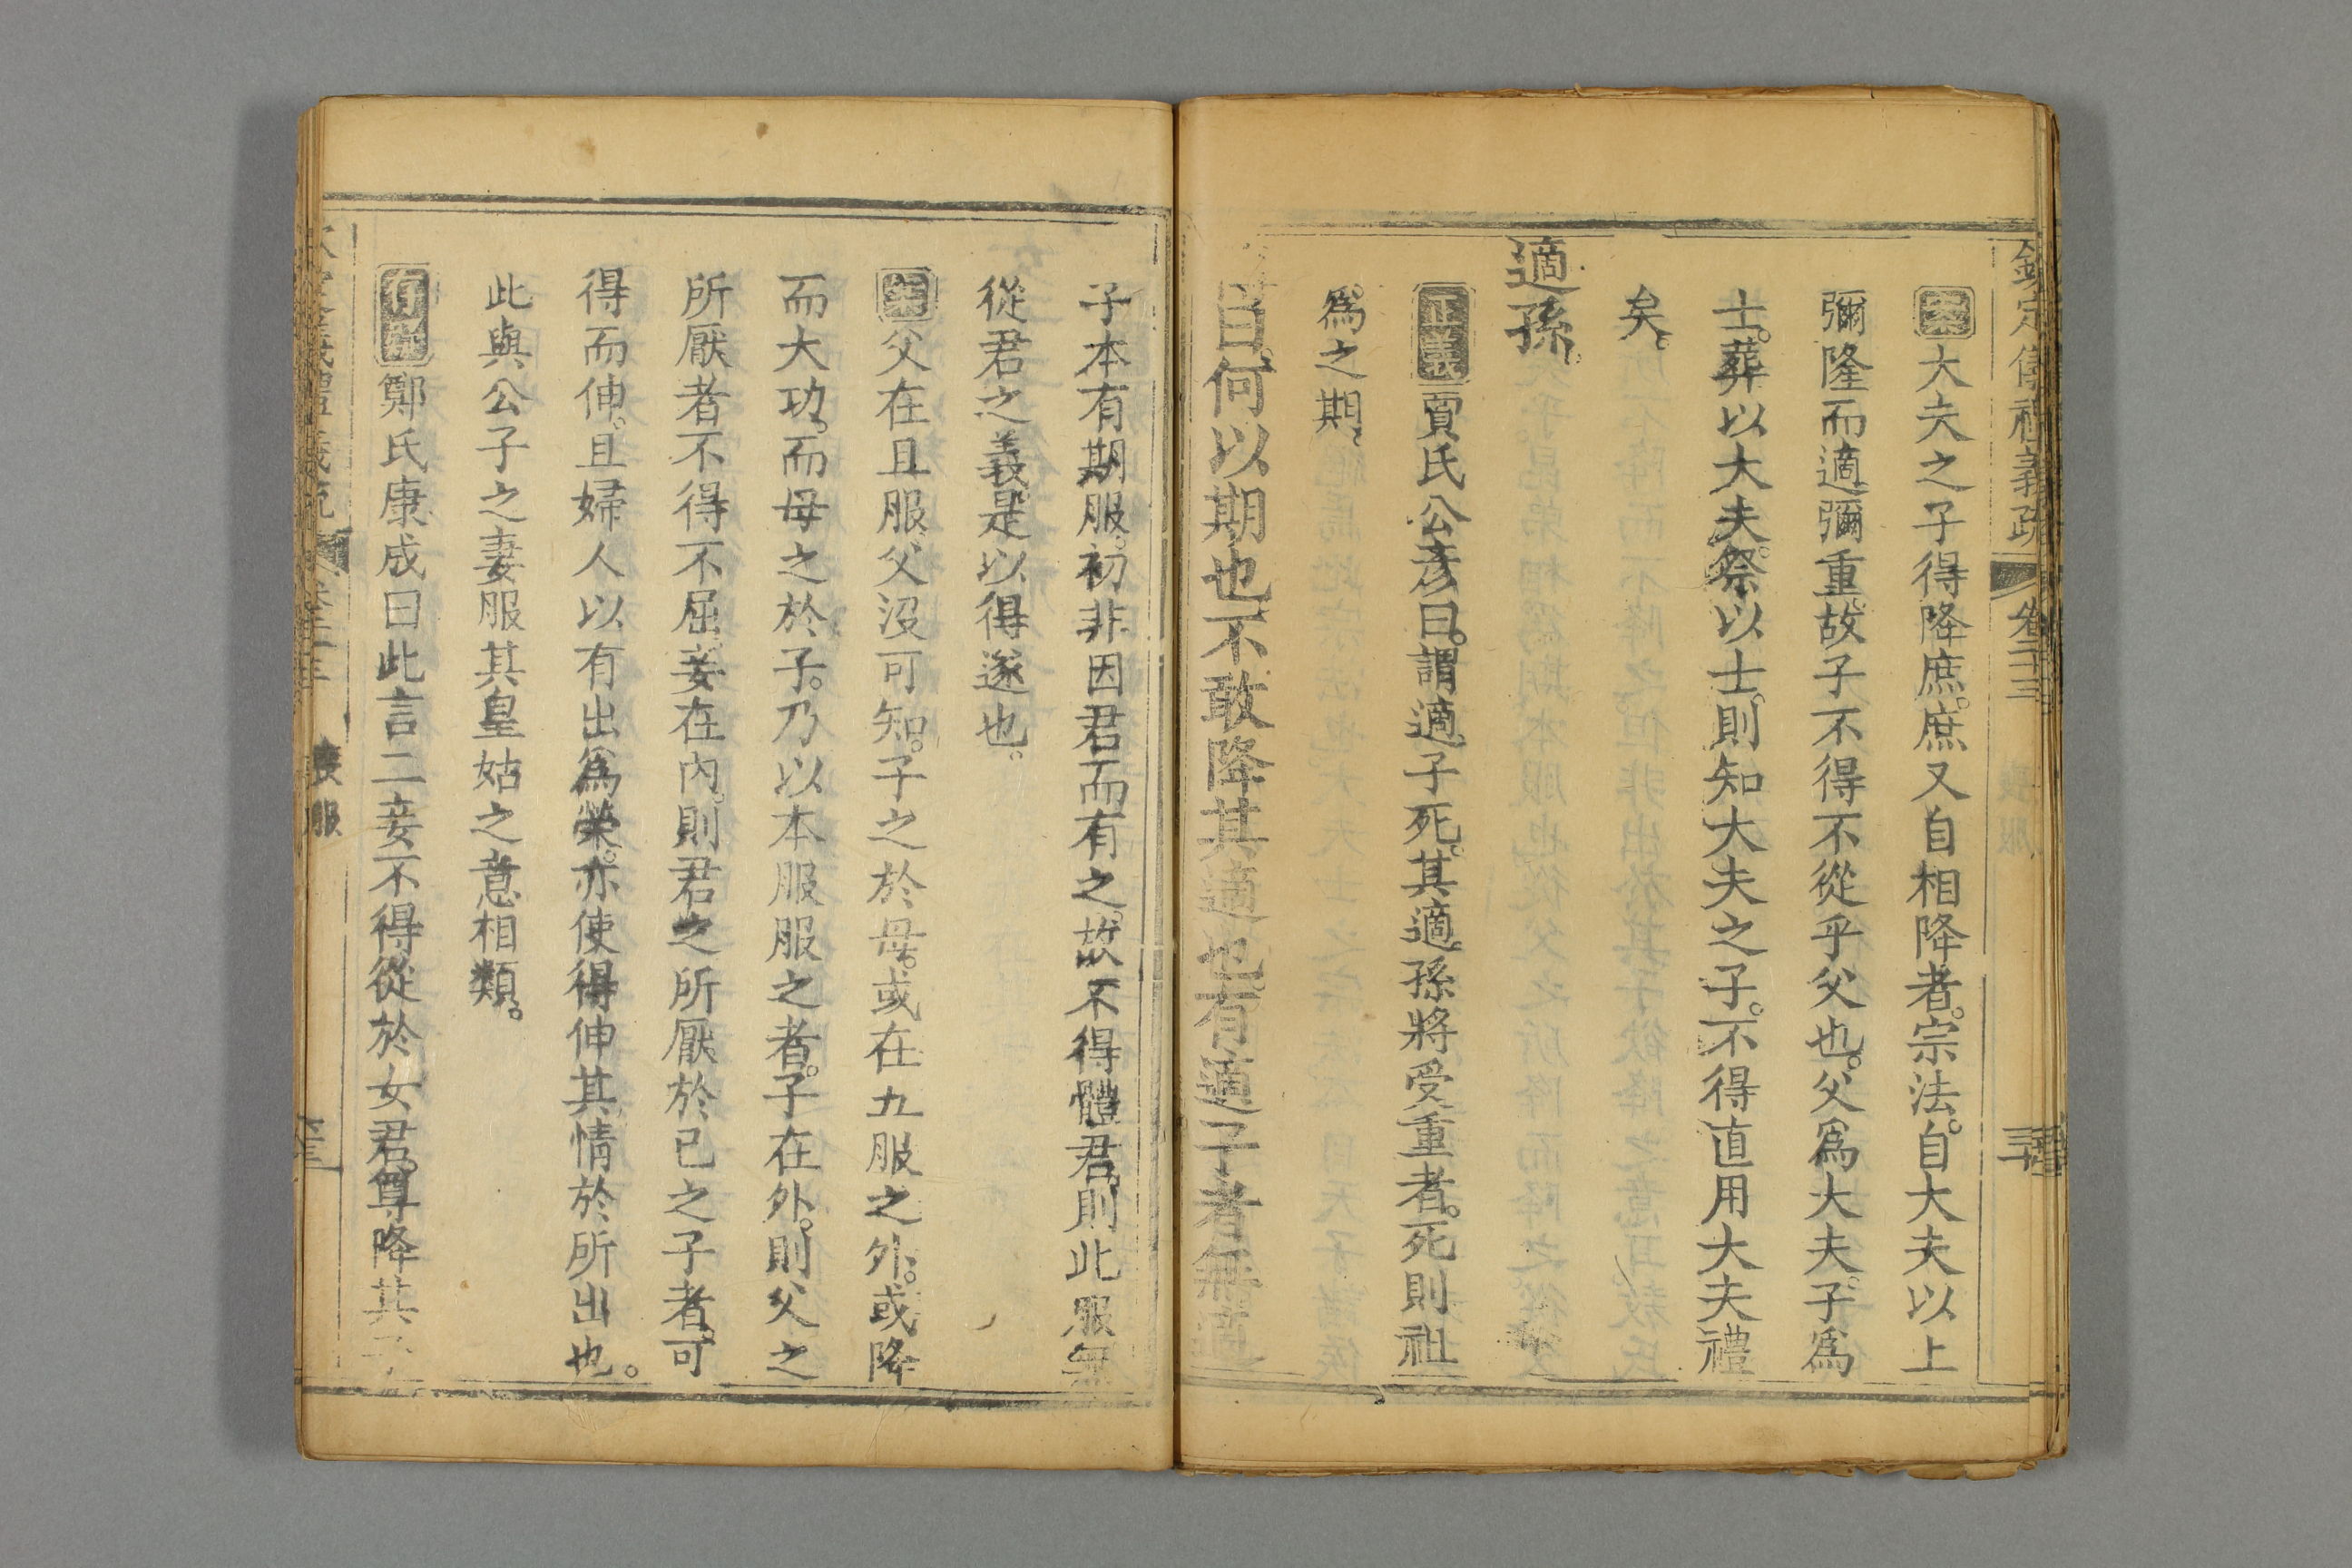 欽定儀禮義疏 卷二十三
案大夫之子得降庶。庶又自相降者。宗法。自大夫以上
彌隆而適彌重。故子不得不從乎父也。父爲大夫。子爲
士。葬以大夫。祭以士。則知大夫之子。不得直用大夫禮
矣。
適孫。
正義賈氏公彦曰。謂適子死。其適孫將受重者。死則祖
爲之期。
曰。何以期也。不敢降其適也。有適子者無適
子本有期服。初非因君而有之。故不得體君。則此服無
從君之義。是以得遂也。
案父在且服。父沒可知。子之於母。或在五服之外。或降
而大功。而母之於子。乃以本服服之者。子在外。則父之
所厭者不得不屈。妾在內。則君之所厭於已之子者。可
得而伸。且婦人以有出爲榮。亦使得伸其情於所出也。
此與公子之妻服其皇姑之意相類。
存疑鄭氏康成曰此言二妾不得從於女君。尊降其子
喪服